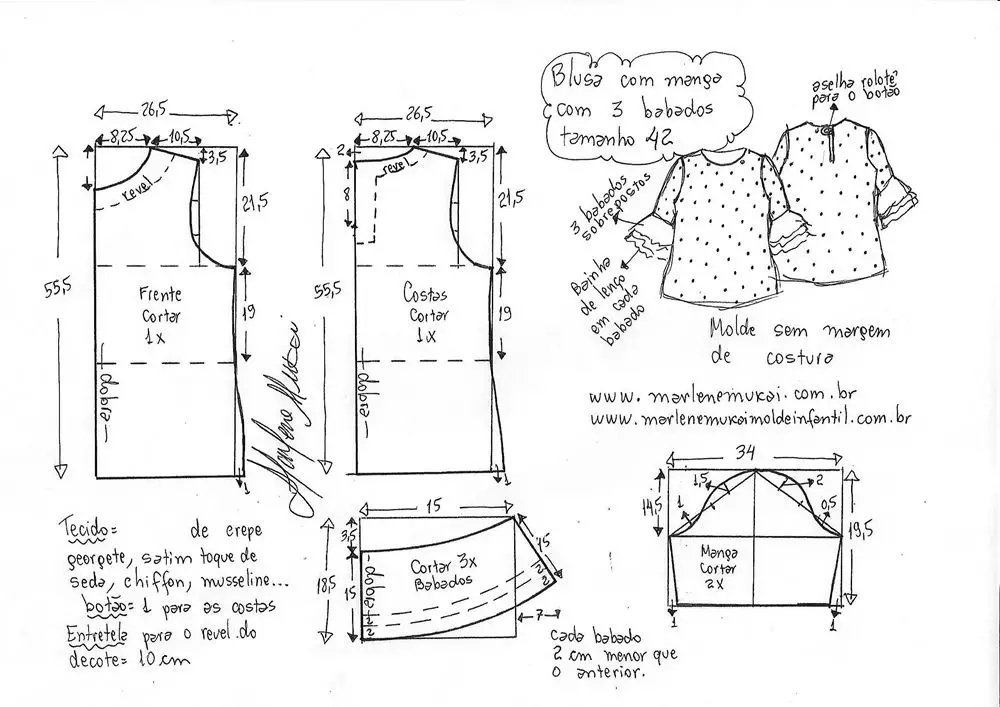 Blusa com manga
com 3 babados
tamanho 42
aselha rolotê
para o botão
3 babados
sobrepostos
Bainha
de lenço
em cada
babado
Molde sem margem
de costura
www.marlenemukai.com.br
www.marlenemukaimoldeinfantil.com.br
26,5
8,25
10,5
3,5
revel
21,5
55,5
Frente
Cortar
1x
19
dobra
1
Marlene Mukai
26,5
8,25
10,5
2
3,5
revel
8
21,5
55,5
Costas
Cortar
1x
19
dobra
1
Tecido= de crepe
georgete, satim toque de
seda, chiffon, musseline...
botão= 1 para as costas
Entretela para o revel do
decote= 10 cm
15
3,5
18,5
15
dobra
Cortar 3x
Babados
15
2
2
2
2
7
cada babado
2 cm menor que
o anterior.
34
1,5
2
14,5
1
0,5
19,5
Manga
Cortar
2x
1
1